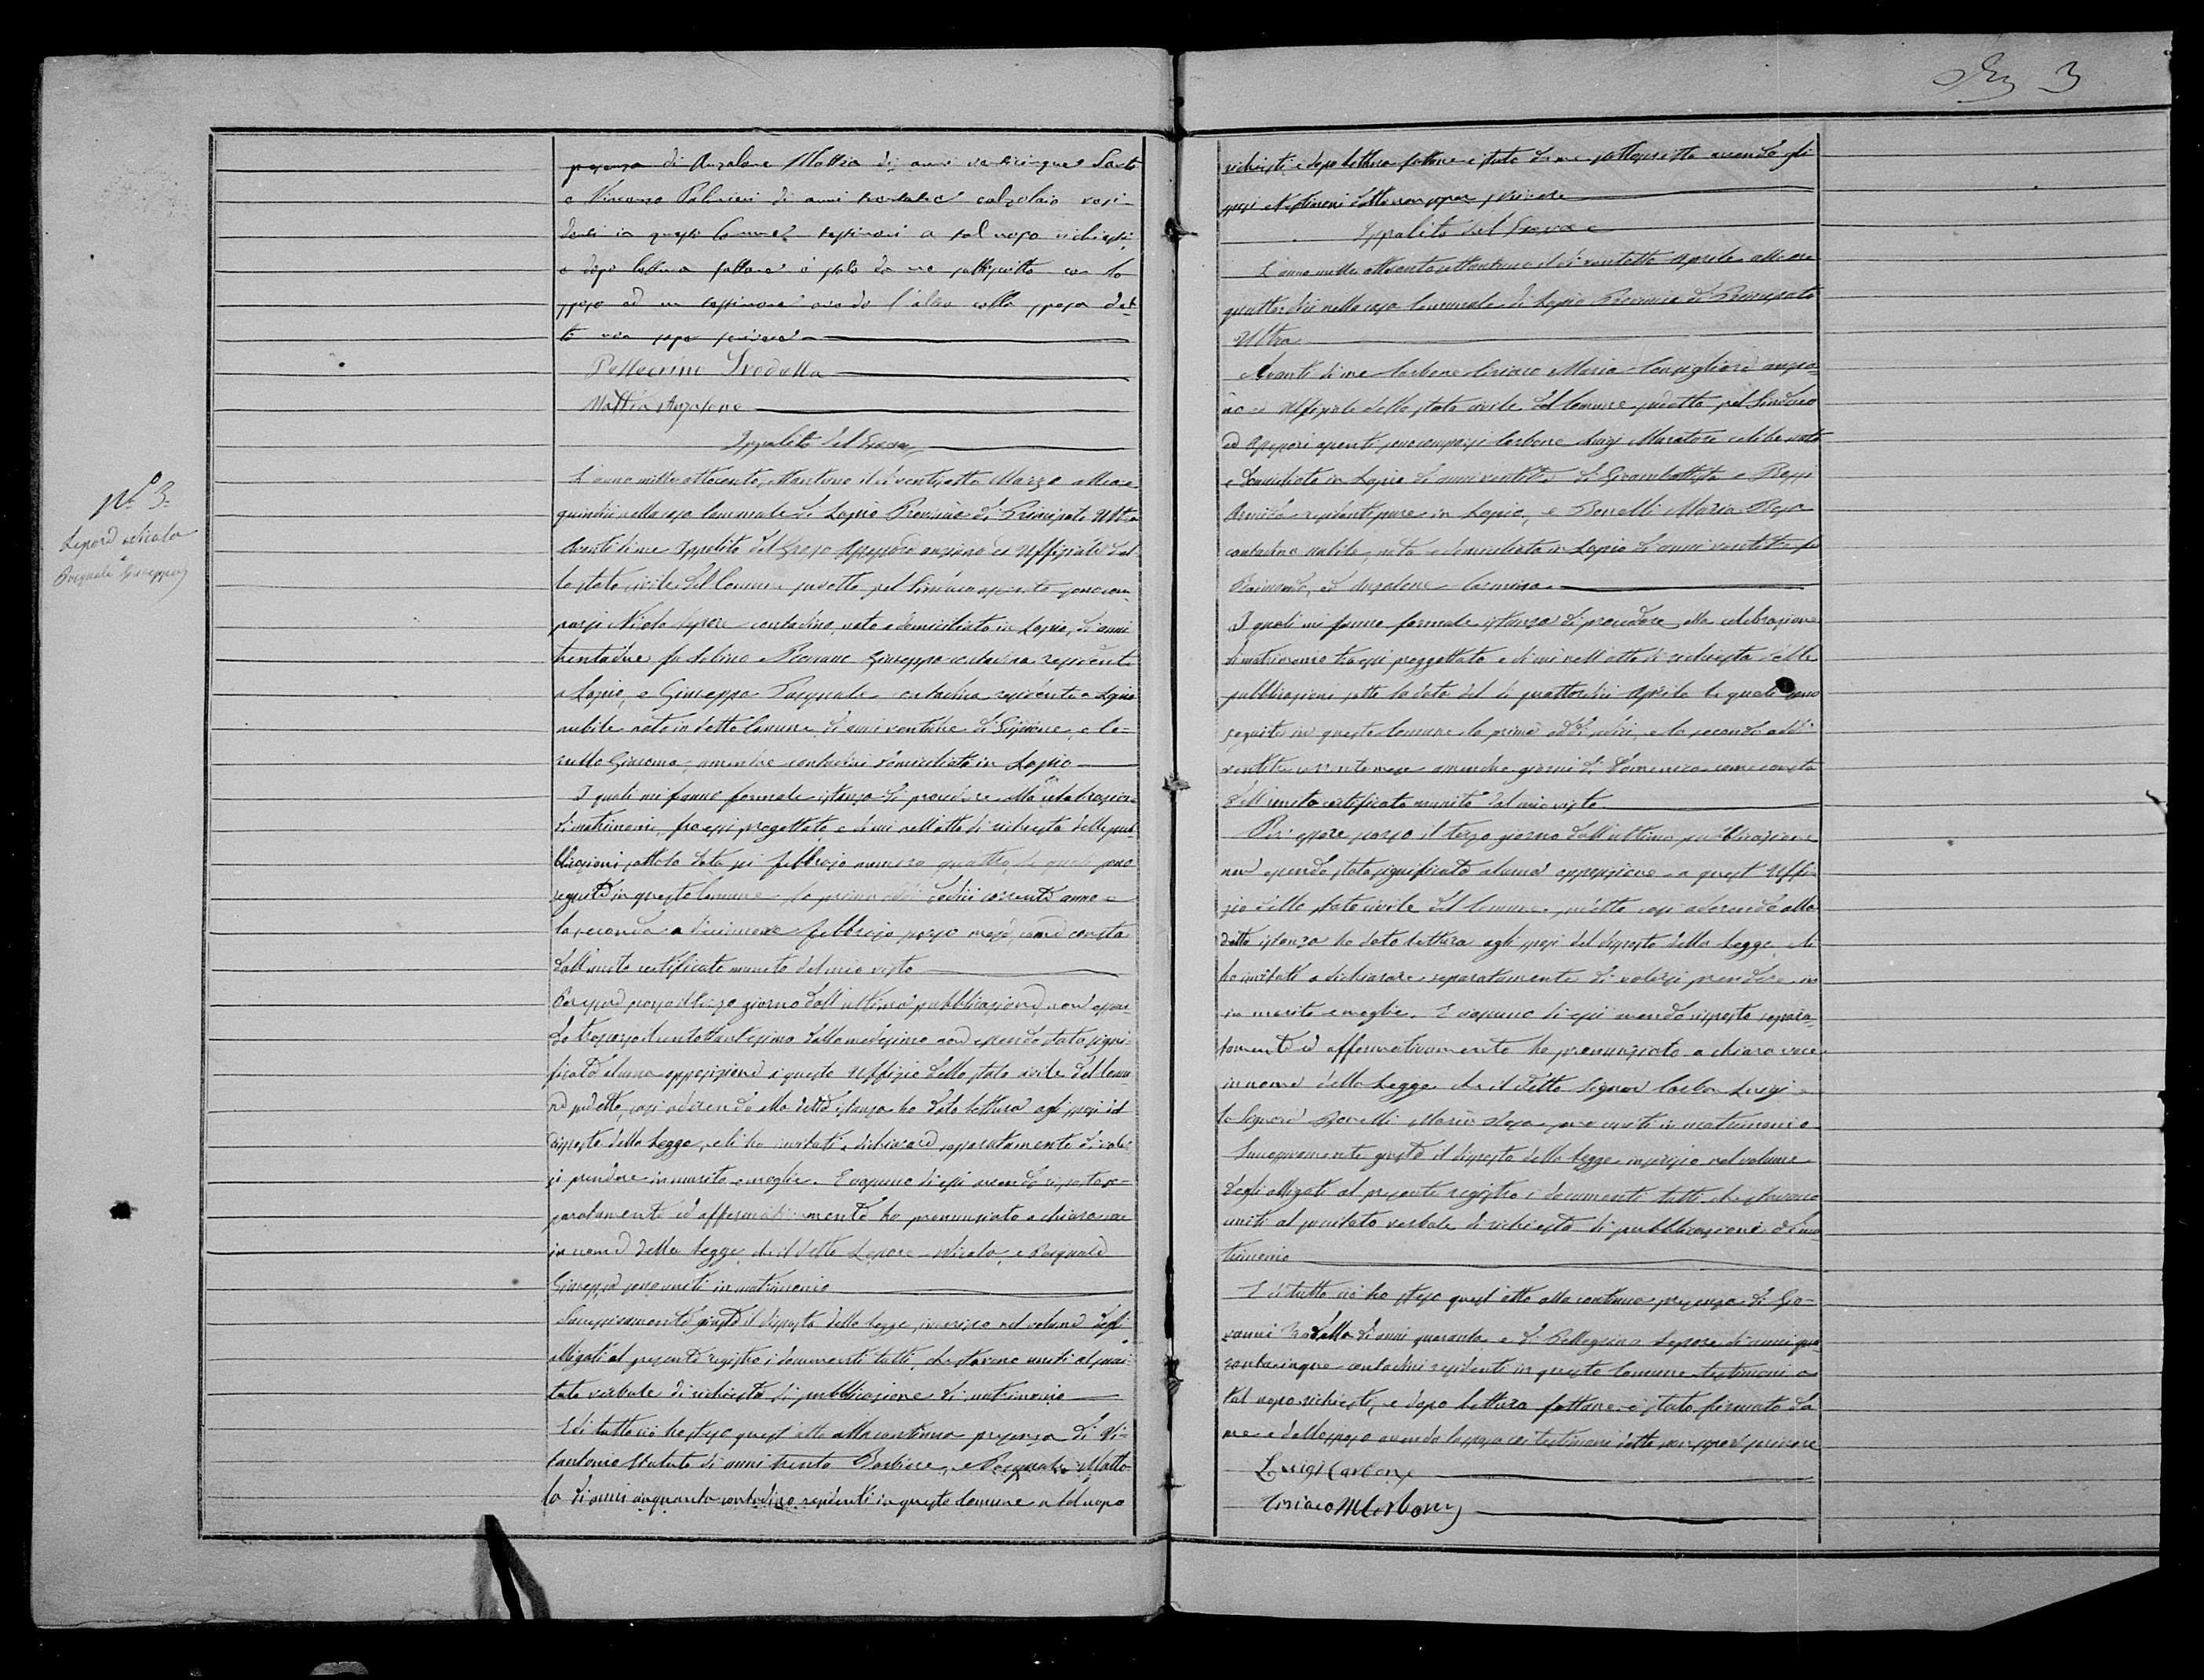 3
di Anzalone Mattia di anni venticinque Sarto
e Vincenzo Palmieri di anni calzolaio resi-
denti in questo Comune testimoni a tal uopo richiesti
e dopo lettura fattane è stato da me sottoscritto con lo
sposo ed un testimone avendo l'altro colla sposa det-
to non saper scrivere
Pellegrino Trodella
Mattia Anzalone
Ippolito del Grosso
N.º 3.
Lepore Nicola
e
Pasquale Giuseppa
L'anno mille ottocento settantuno il dì ventiquattro Marzo alle ore
quindici nella casa Comunale di Lapio Provincia di Principato Ultra
Avanti di me Ippolito del Grosso Assessore anziano ed Uffiziale del-
lo stato civile del Comune predetto pel Sindaco assente sono com-
parsi Nicola Lepore contadino, nato e domiciliato in Lapio, di anni
trentadue fu Sabino e Giuseppa contadina residente
a Lapio, e Giuseppa Pasquale contadina residente a Lapio
nubile nata in detto Comune di anni ventitre di Scipione, e Ce-
rullo Giacoma, amendue contadini domiciliati in Lapio
I quali mi fanno formale istanza di procedere alla celebrazione
di matrimonio fra essi progettato e di cui nell'atto di richiesta delle pub-
blicazioni sotto la data sei febbrajo numero quattro, le quali sono
seguite in questo Comune la prima addì dodici corrente anno e
la seconda a diciannove febbrajo scorso mese, come consta
dall'unito certificato munito del mio visto
Per essere scorso il terzo giorno dall'ultima pubblicazione, non essen-
do trascorso il centottantesimo dalla medesima non essendo stata signi-
ficata alcuna opposizione a questo Uffizio dello stato civile del Comu-
ne predetto, così aderendo alla detta istanza ho dato lettura agli sposi del
disposto della Legge, e li ho invitati a dichiarare separatamente di voler-
si prendere in marito e moglie. E ciascuno di essi avendo risposto se-
paratamente ed affermativamente ho pronunziato a chiara voce
in nome della Legge che il detto Lepore Nicola, e Pasquale
Giuseppa sono uniti in matrimonio
Successivamente giusta il disposto della Legge, inserisco nel volume degli
allegati al presente registro i documenti tutti, che stavano uniti al preci-
tato verbale di richiesta di pubblicazione di matrimonio
E di tutto ciò ho steso quest'atto alla continua presenza di Vi-
tantonio di anni trenta Barbiere, e Pasquale Motto-
la di anni cinquanta contadino residenti in questo Comune a tal uopo
richiesti e dopo lettura fattane è stato da me sottoscritto avendo gli
sposi e testimoni detto non saper scrivere
Ippolito del Grosso
L'anno mille ottocento settantuno il dì ventotto Aprile alle ore
quattordici nella casa Comunale di Lapio Provincia di Principato
Ultra
Avanti di me Carbone Ciriaco Maria Consigliere anzia-
no ed Uffiziale dello stato civile del Comune predetto pel Sindaco
ed Assessori assenti sono comparsi Carbone Luigi Muratore celibe nato
e domiciliato in Lapio di anni di Giambattista e
residenti pure in Lapio, e Bonelli Maria Rosa
contadina nubile, nata e domiciliata in Lapio di anni fu
Raimondo, ed Anzalone Carmina
I quali mi fanno formale istanza di procedere alla celebrazione
di matrimonio tra essi progettato e di cui nell'atto di richiesta delle
pubblicazioni sotto la data del dì quattordici Aprile le quali sono
seguite in questo Comune la prima addì sedici, e la seconda addì
ventitre corrente mese amendue giorni di Domenica come consta
dall'unito certificato munito del mio visto
Per essere scorso il terzo giorno dall'ultima pubblicazione
non essendo stata significata alcuna opposizione a quest'Uffi-
zio dello stato civile del Comune predetto così aderendo alla
detta istanza ho dato lettura agli sposi del disposto della Legge e li
ho invitati a dichiarare separatamente di volersi prendere in
in marito e moglie. E ciascuno di essi avendo risposto separa-
tamente ed affermativamente ho pronunziato a chiara voce
in nome della Legge che il detto Signor Carbone Luigi e
la Signora Bonelli Maria Rosa sono uniti in matrimonio
Successivamente giusta il disposto della Legge inserisco nel volume
degli allegati al presente registro i documenti tutti che stavano
uniti al precitato verbale di richiesta di pubblicazioni di ma-
trimonio
E di tutto ciò ho steso quest'atto alla continua presenza di Gio-
vanni Trodella di anni quaranta e di Pellegrino Lepore di anni qua-
rantacinque contadini residenti in questo Comune testimoni a
tal uopo richiesti, e dopo lettura fattane è stato firmato da
me e dallo sposo avendo la sposa coi testimoni detto non saper scrivere
Luigi Carbone
Ciriaco M Carbone